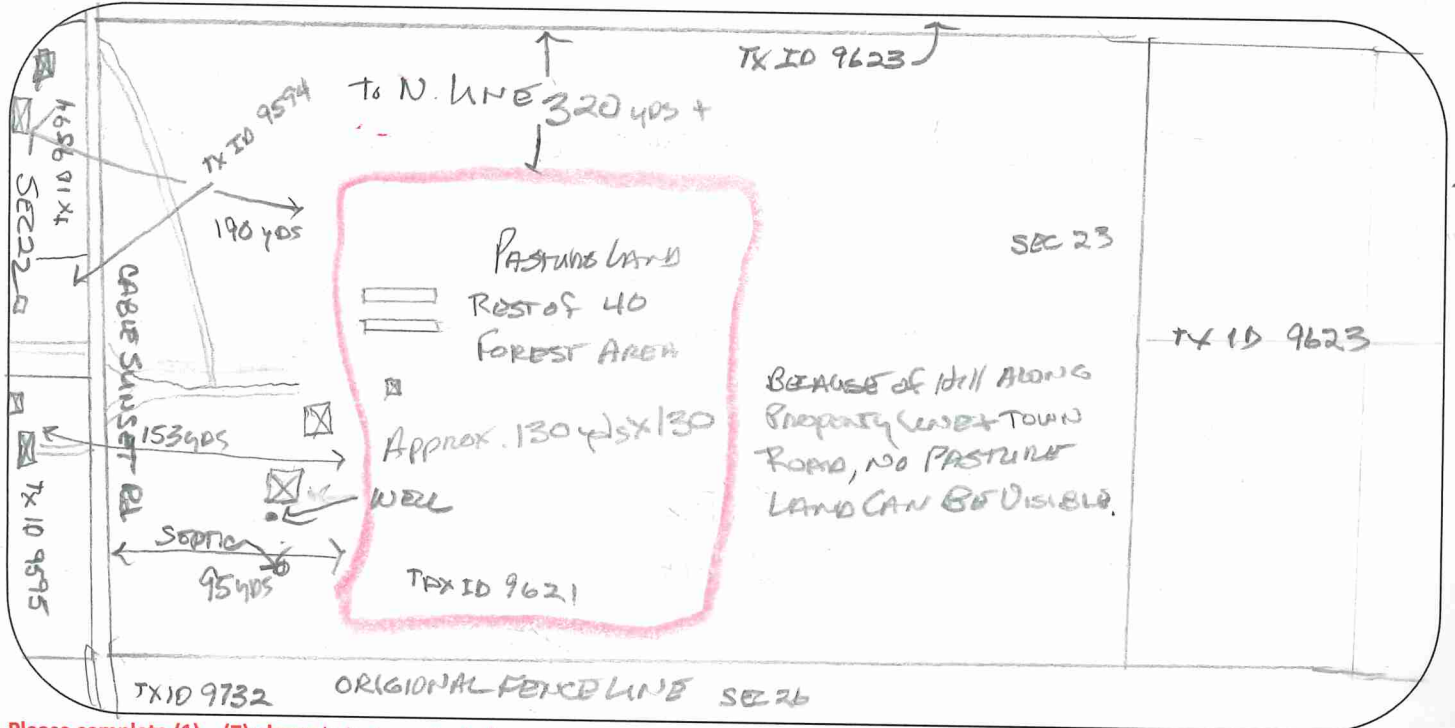 TX ID 9623
to N. LINE 320 yDS +
TX ID 9594
TX ID 9594
SEC 22
190 yDS
PASTURE LAND
REST OF 40
FOREST AREA
SEC 23
TX ID 9623
CABLE SUNSET Rd
BECAUSE of Hill ALONG
Property LINE + TOWN
ROAD, NO PASTURE
LAND CAN BE VISIBLE.
153 yDS
Approx. 130 yds X 130
WELL
SEPTIC
95 yDS
TAX ID 9621
TX ID 9595
TX ID 9732
ORIGIONAL FENCE LINE
SEC 26